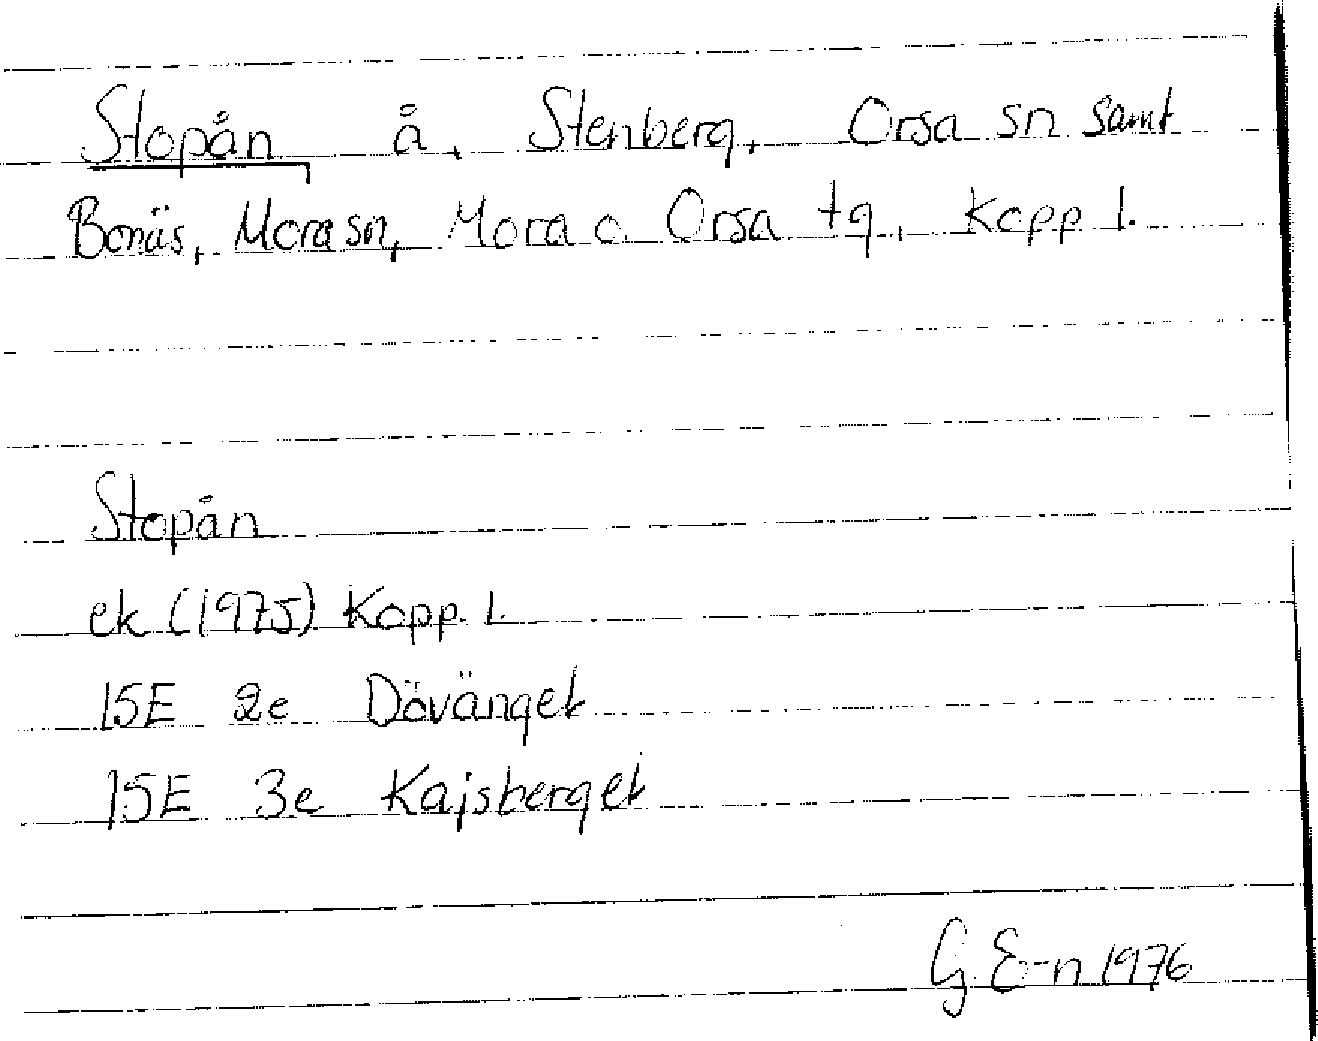 Stopån å, Stenberg, Orsa sn samt
Bonäs, Mora sn, Mora o Orsa tg, Kopp l.
Stopån
ek (1975) Kopp. l.
15E 2e Dövänget
15E 3e Kajsberget
G E-n 1976